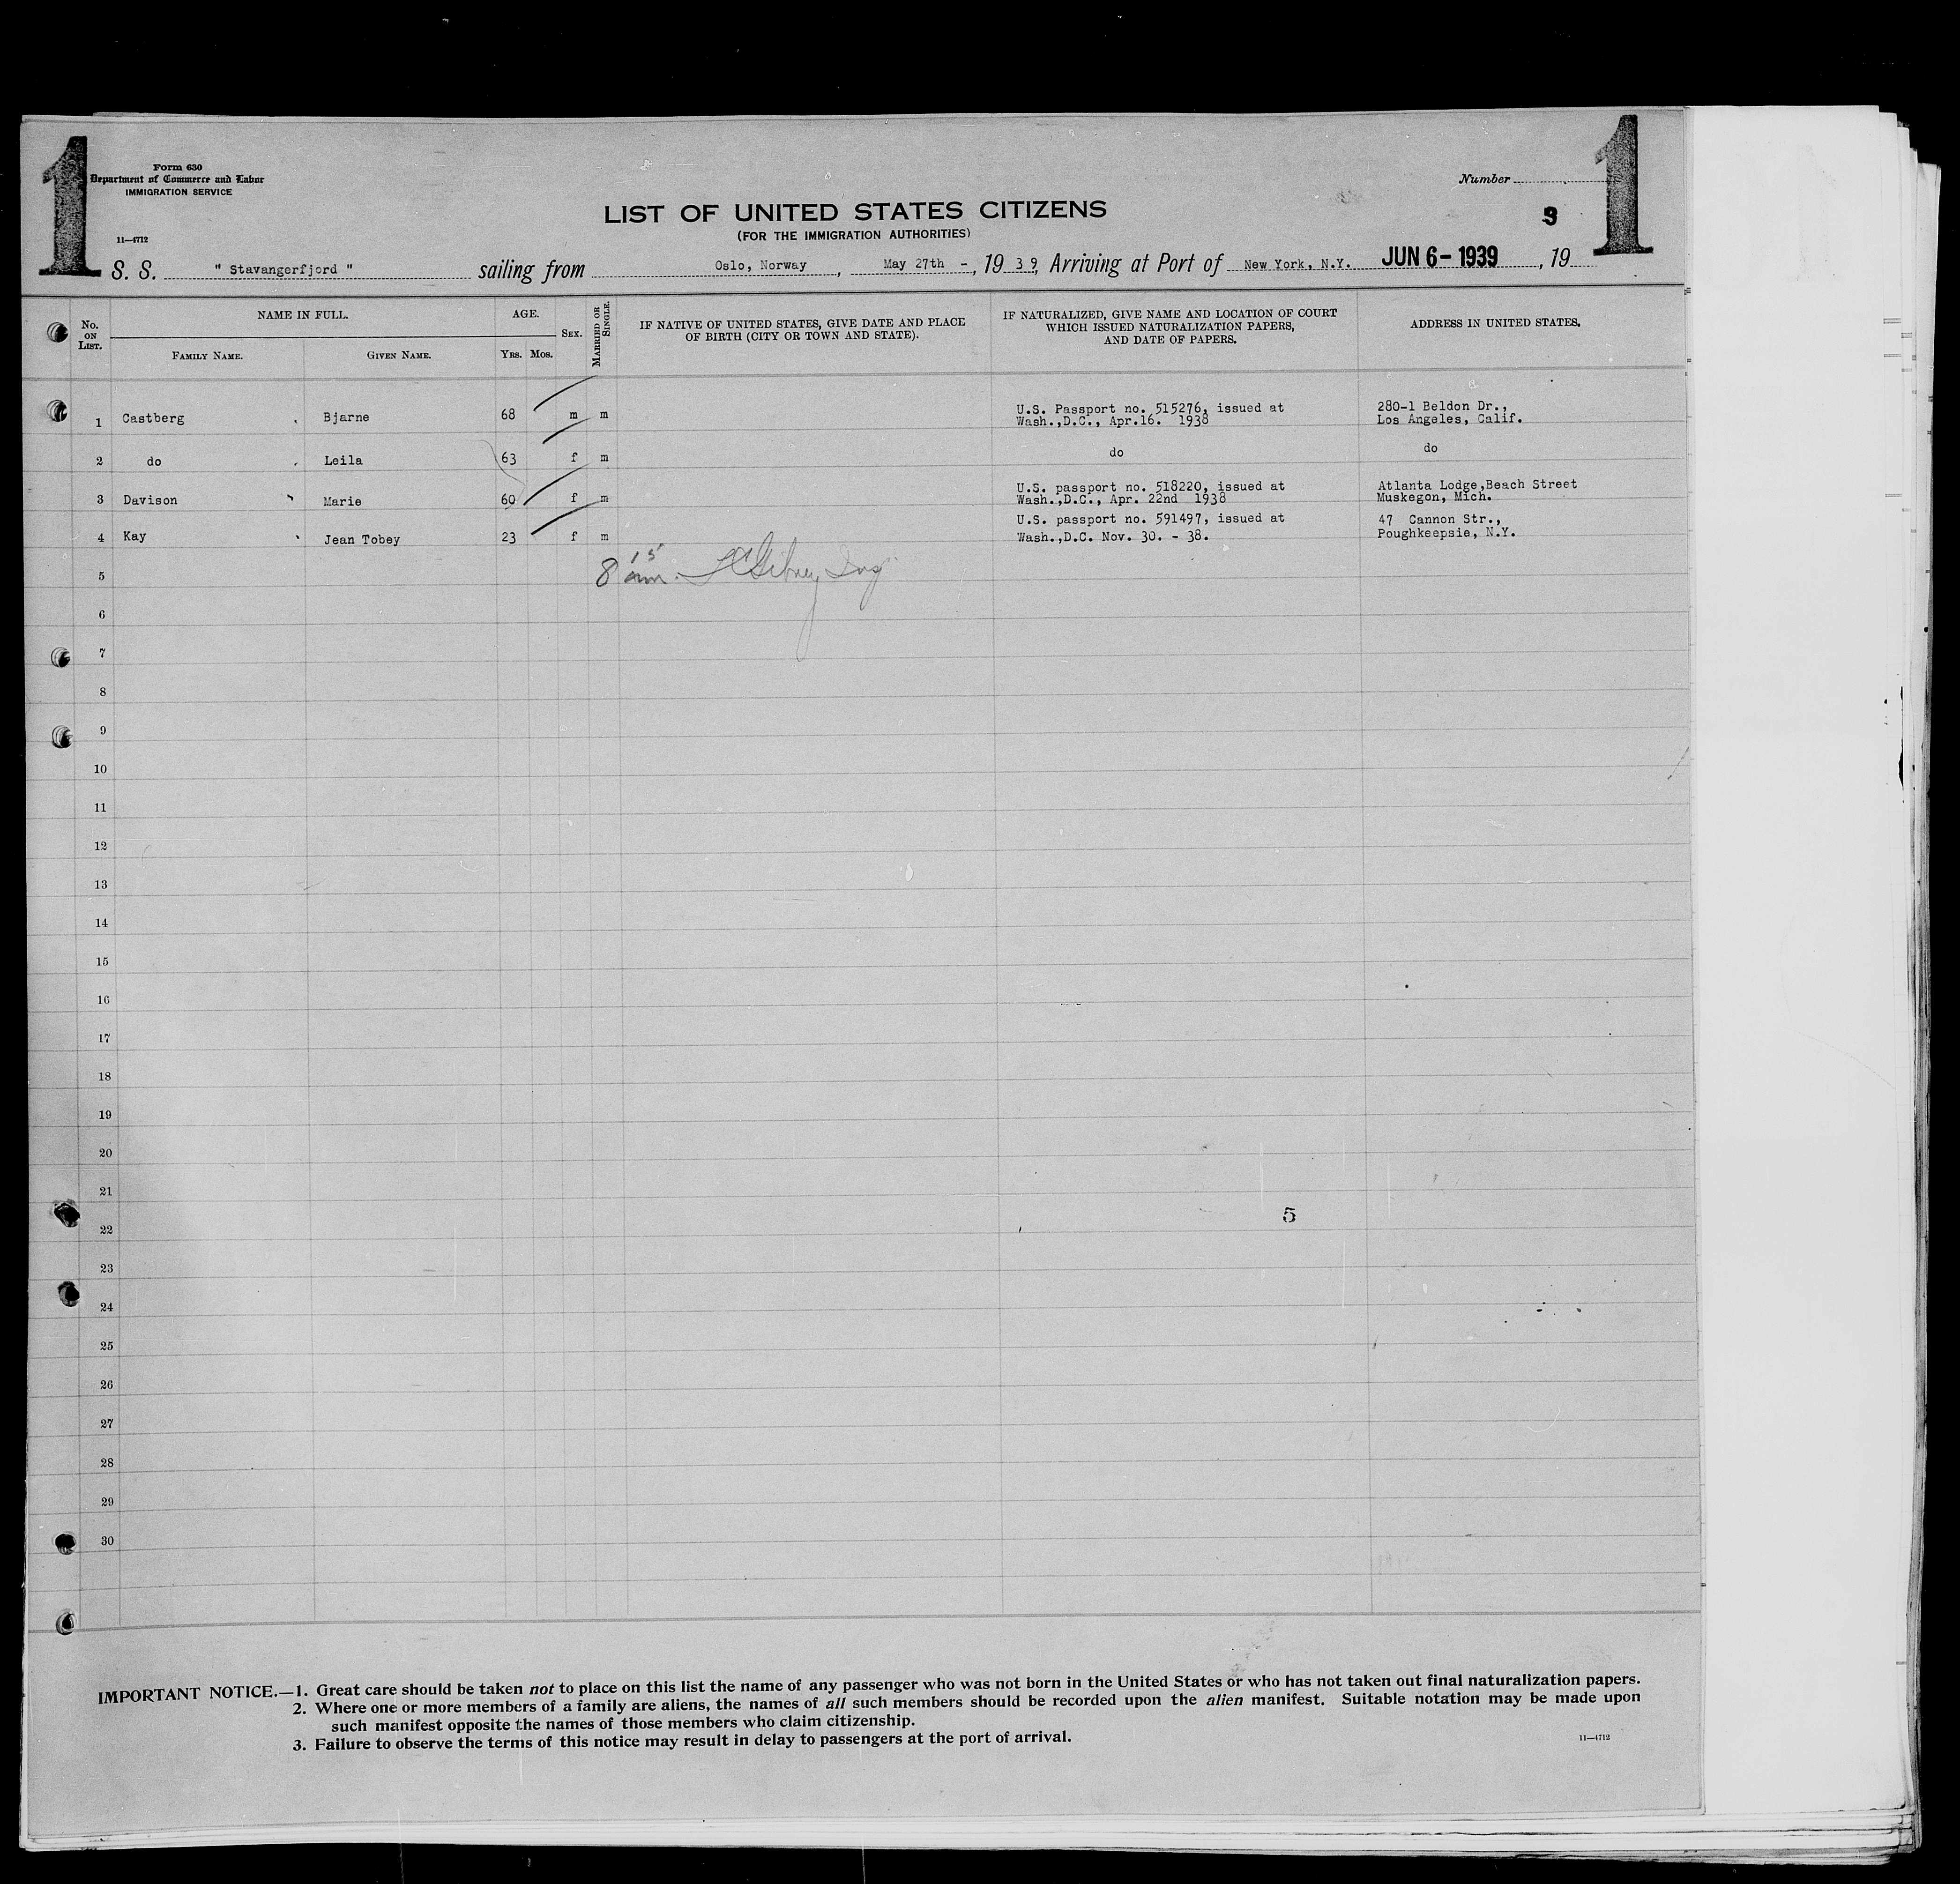 1
1
Form 630
Department of Commerce and Labor
IMMIGRATION SERVICE
Number
LIST OF UNITED STATES CITIZENS
(FOR THE IMMIGRATION AUTHORITIES)
9
11—4712
S. S. " Stavangerfjord " sailing from Oslo, Norway, May 27th -, 19 39, Arriving at Port of New York, N.Y. JUN 6-1939, 19
No. ON LIST.
NAME IN FULL.
FAMILY NAME.
GIVEN NAME.
AGE.
YRS. MOS.
SEX.
MARRIED OR SINGLE.
IF NATIVE OF UNITED STATES, GIVE DATE AND PLACE
OF BIRTH (CITY OR TOWN AND STATE).
IF NATURALIZED, GIVE NAME AND LOCATION OF COURT
WHICH ISSUED NATURALIZATION PAPERS,
AND DATE OF PAPERS.
ADDRESS IN UNITED STATES.
1 Castberg Bjarne 68 m m U.S. Passport no. 515276, issued at 280-1 Beldon Dr.,
Wash.,D.C., Apr.16. 1938 Los Angeles, Calif.
2 do Leila 63 f m do do
3 Davison Marie 60 f m U.S. passport no. 518220, issued at Atlanta Lodge,Beach Street
Wash.,D.C., Apr. 22nd 1938 Muskegon, Mich.
4 Kay Jean Tobey 23 f m U.S. passport no. 591497, issued at 47 Cannon Str.,
Wash.,D.C. Nov. 30. - 38. Poughkeepsie, N.Y.
8 15 am.
5
6
7
8
9
10
11
12
13
14
15
16
17
18
19
20
21
5
22
23
24
25
26
27
28
29
30
IMPORTANT NOTICE.—1. Great care should be taken not to place on this list the name of any passenger who was not born in the United States or who has not taken out final naturalization papers.
2. Where one or more members of a family are aliens, the names of all such members should be recorded upon the alien manifest. Suitable notation may be made upon
such manifest opposite the names of those members who claim citizenship.
3. Failure to observe the terms of this notice may result in delay to passengers at the port of arrival.
11—4712